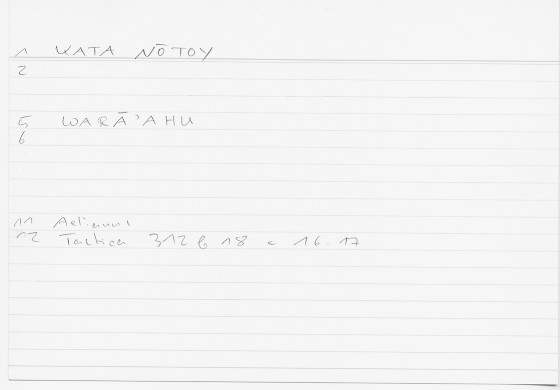 1 KATA NŌTOY
2
5 WARĀʾAHU
6
11 Aelianus
12 Tactica 312 b 18 < 16.17